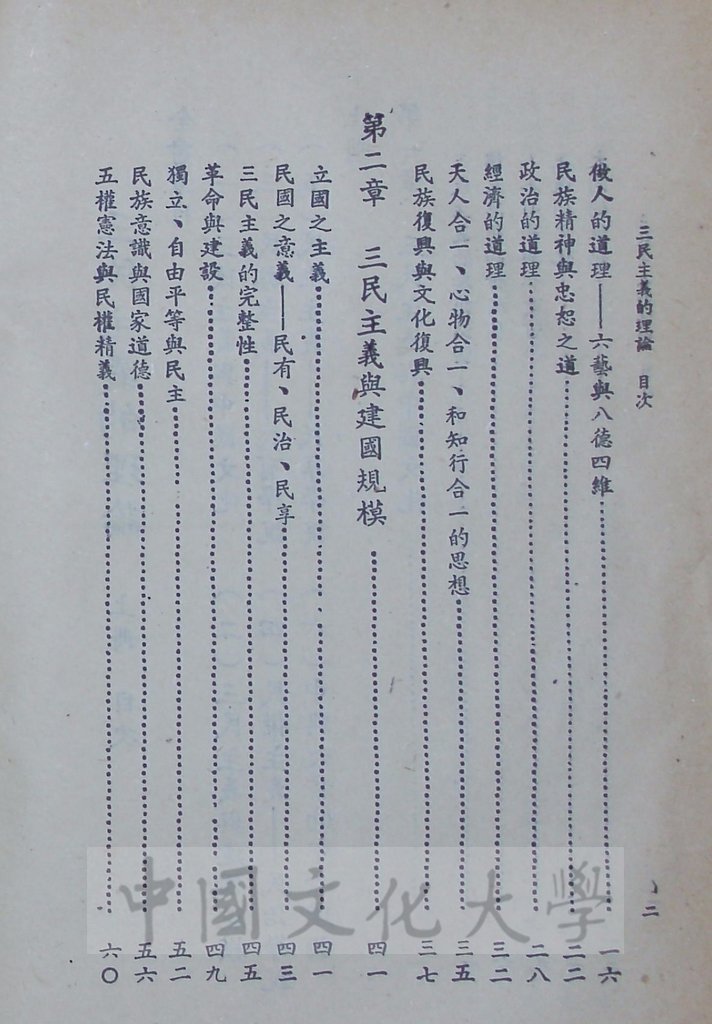 三民主義的理論 目次
二
做人的道理——六藝與八德四維 一六
民族精神與忠恕之道 二二
政治的道理 二八
經濟的道理 三二
天人合一、心物合一、和知行合一的思想 三五
民族復興與文化復興 三七
第二章 三民主義與建國規模 四一
立國之主義 四一
民國之意義——民有、民治、民享 四三
三民主義的完整性 四五
革命與建設 四九
獨立、自由平等與民主 五二
民族意識與國家道德 五六
五權憲法與民權精義 六〇
中國文化大學